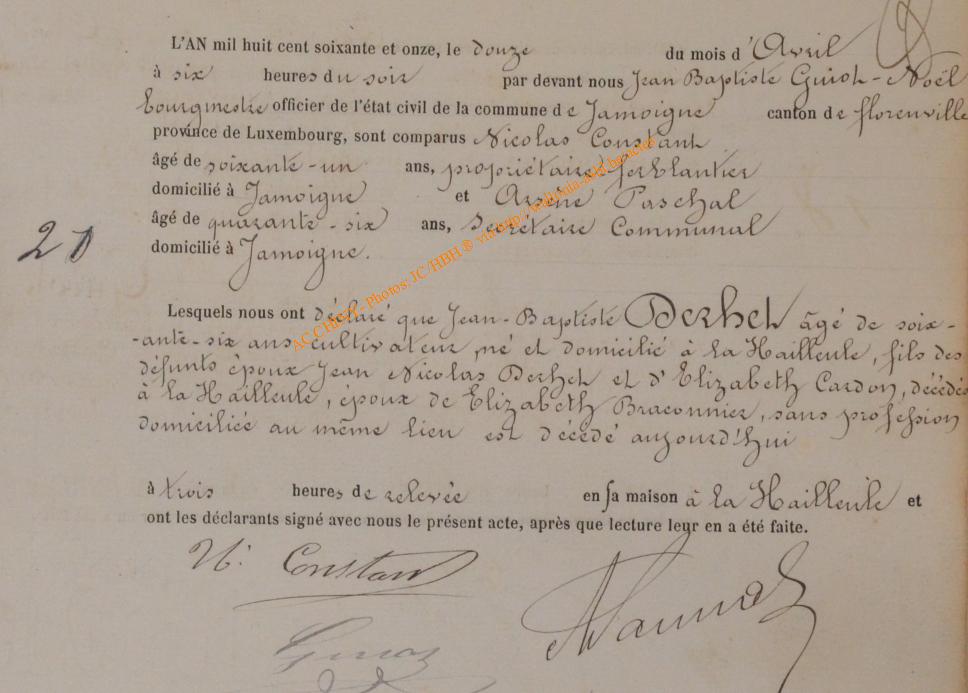 L'AN mil huit cent soixante et onze, le douze du mois d'Avril
à six heures du soir par devant nous Jean Baptiste Guiot-Noël
bourgmestre officier de l'état civil de la commune de Jamoigne canton de florenville
province de Luxembourg, sont comparus Nicolas Constant
âgé de soixante-un ans, propriétaire ferblantier
domicilié à Jamoigne et Arsène Paschal
âgé de quarante-six ans, Secrétaire Communal
20
domicilié à Jamoigne.
Lesquels nous ont déclaré que Jean-Baptiste Derhet âgé de soix-
-ante-six ans cultivateur, né et domicilié à la Hailleule, fils des
défunts époux Jean Nicolas Derhet et d'Elizabeth Cardon, décédés
à la Hailleule, époux de Elizabeth Braconnier, sans profession
domiciliée au même lieu est décédé aujourd'hui
à trois heures de relevée en sa maison à la Hailleule et
ont les déclarants signé avec nous le présent acte, après que lecture leur en a été faite.
N. Constant
ACCHESA - Photos: JC/HBH ® via http://wallonia-asbl.be/actes